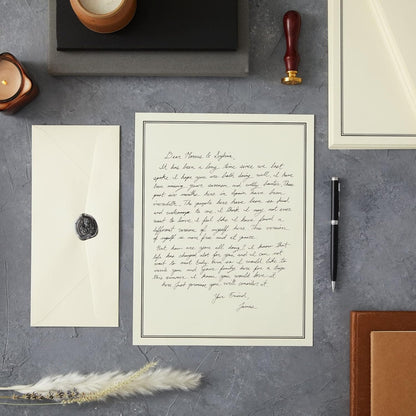 Dear Marcus & Sophia,
It has been a long time since we last
spoke. I hope you are both doing well. I have
been missing your and witty banter. These
past six months here in Spain have been
incredible. The people here have been so kind
and welcoming to me I think I may not ever
want to leave. I feel like I have found a
different version of myself here. This version
of myself is more free and at peace.
But how are you all doing? I know that
life has changed alot for you and it can not
want to visit I would like to
invite you and your family here for a trip
this summer. I know you would love it
here. Just promise you will consider it.
Your Friend,
James